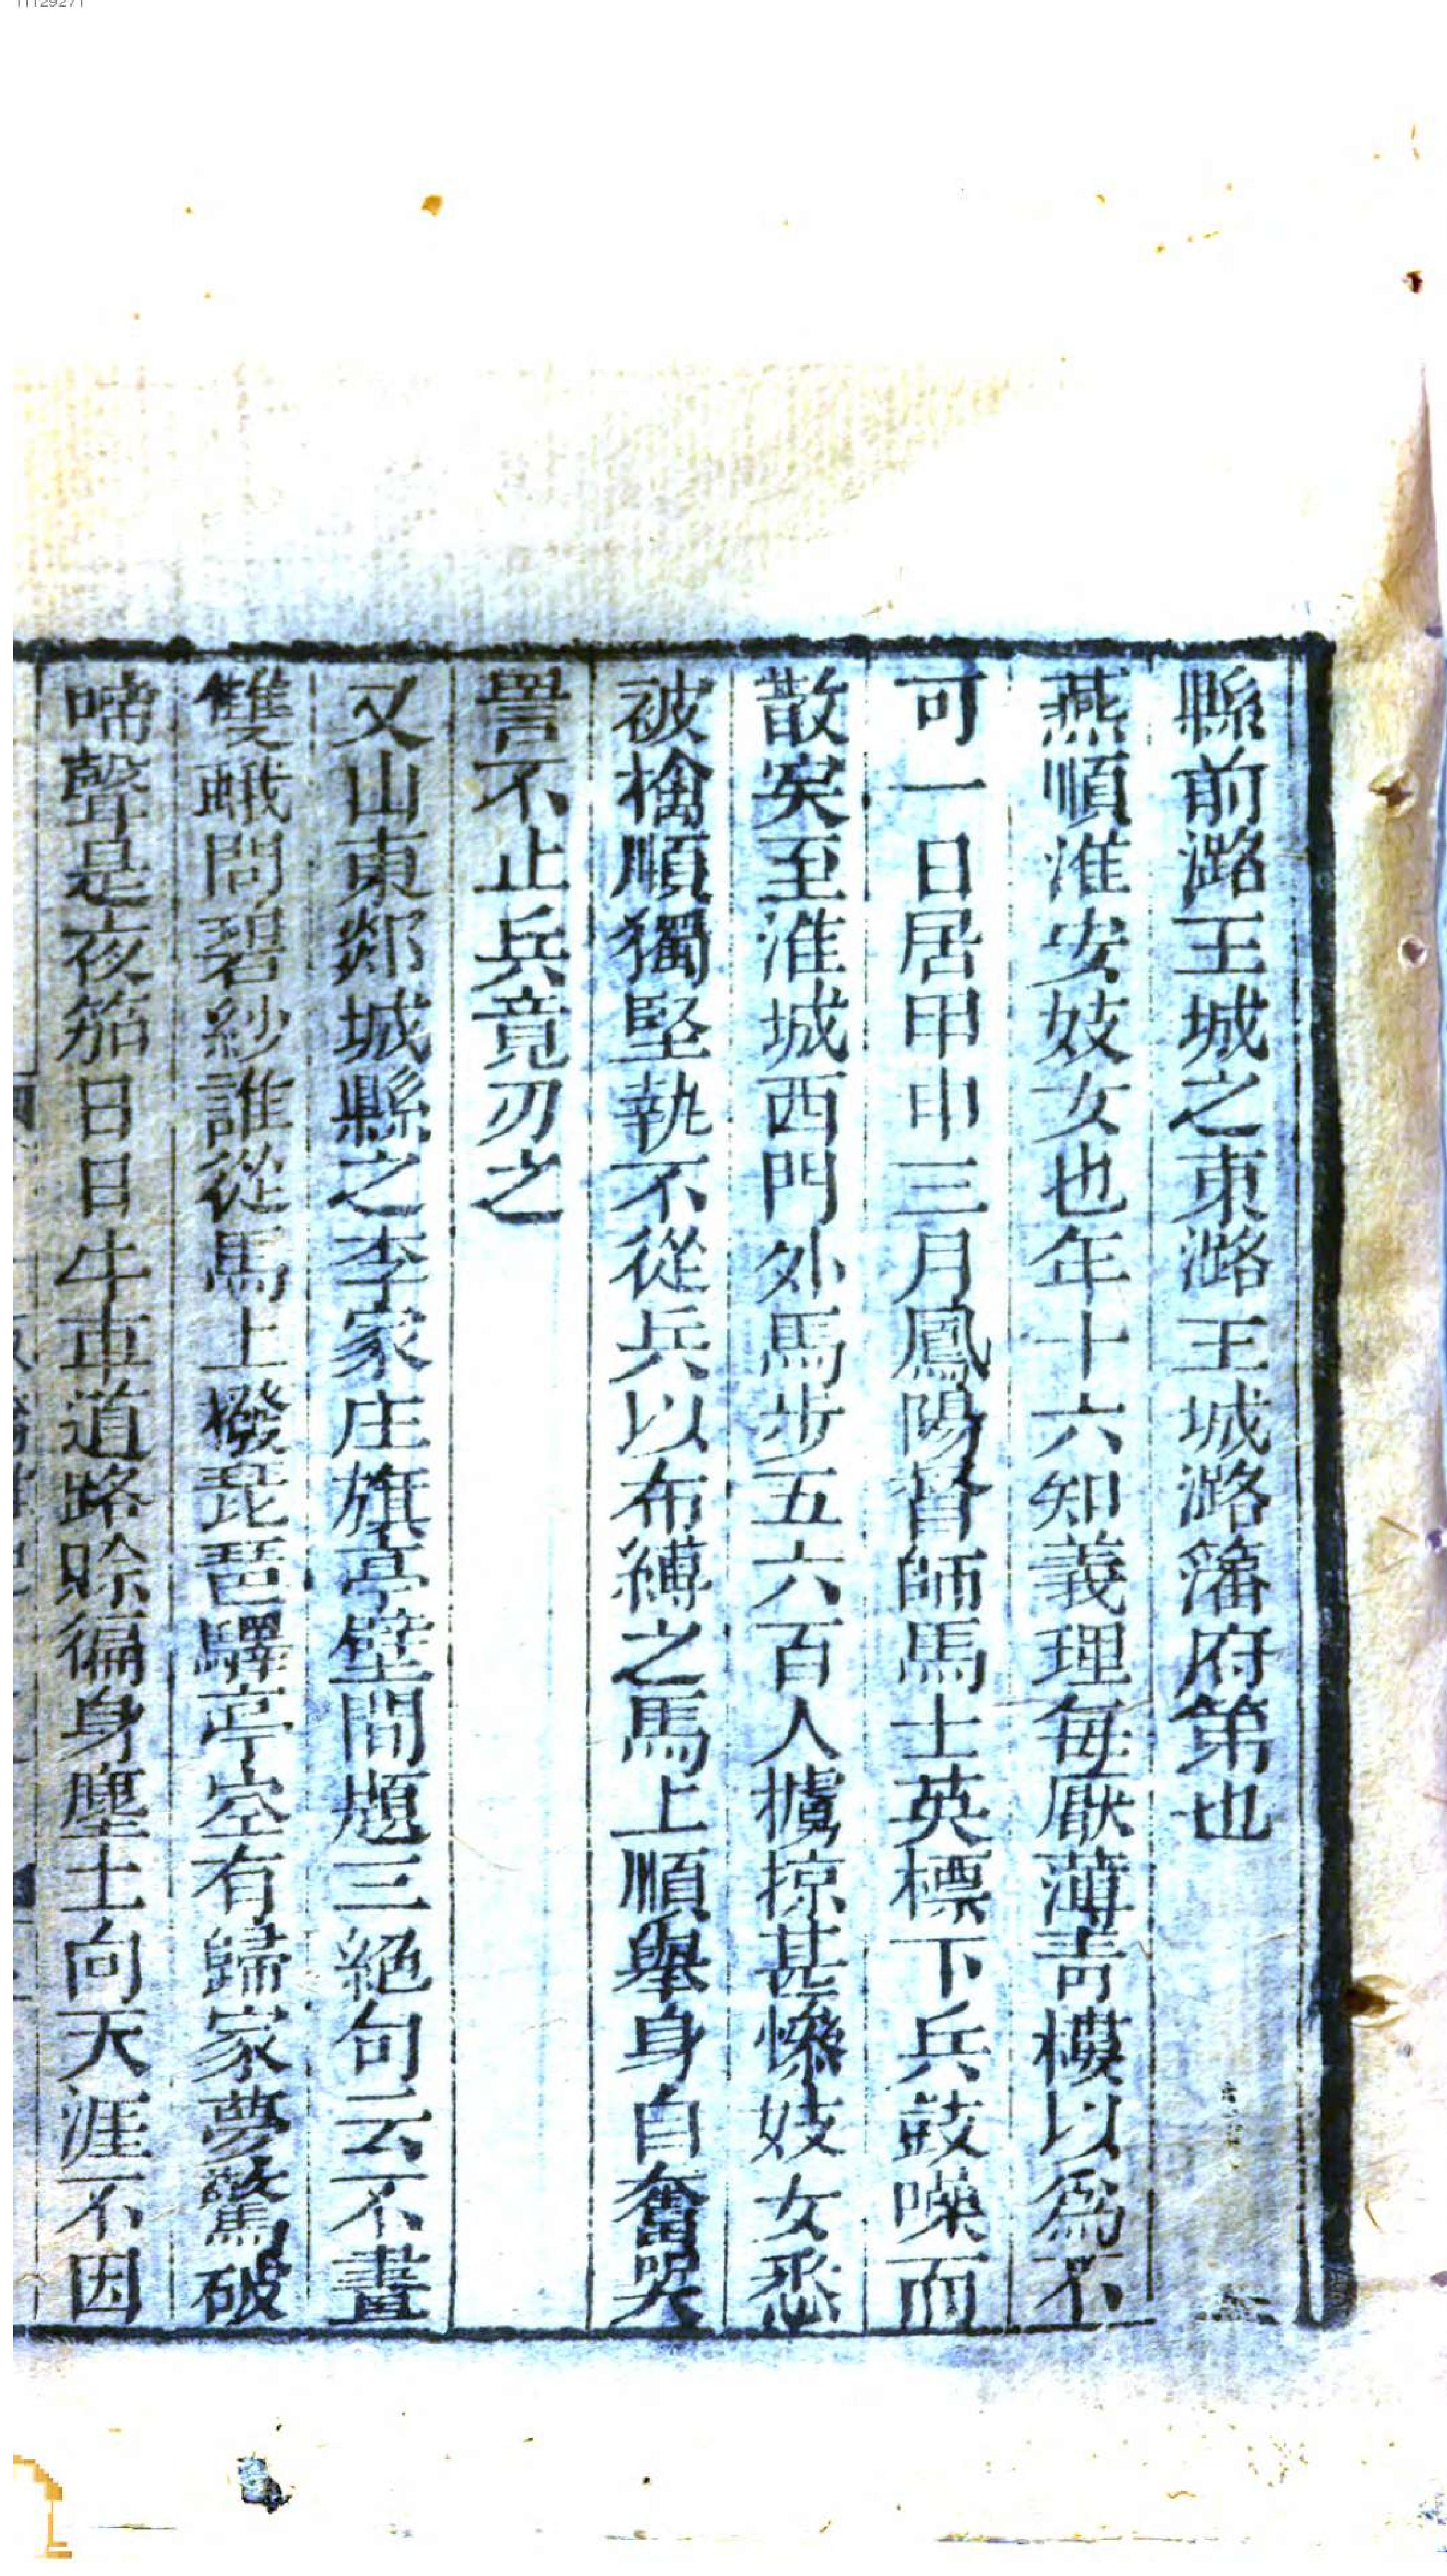 縣前潞王城之東潞王城潞藩府第也
燕順淮安妓女也年十六知義理每厭薄青樓以爲不
可一日居甲申三月鳳陽督師馬士英標下兵鼓噪而
散矣至淮城西門外馬步五六百人擄掠甚慘妓女悉
被擒順獨堅執不從兵以布縛之馬上順舉身自奮哭
詈不止兵竟刃之
又山東郯城縣之李家庄旗亭壁間題三絕句云不畫
雙蛾問碧紗誰從馬上撥琵琶驛亭空有歸家夢驚破
啼聲是夜笳日日牛車道路賖徧身塵土向天涯不因